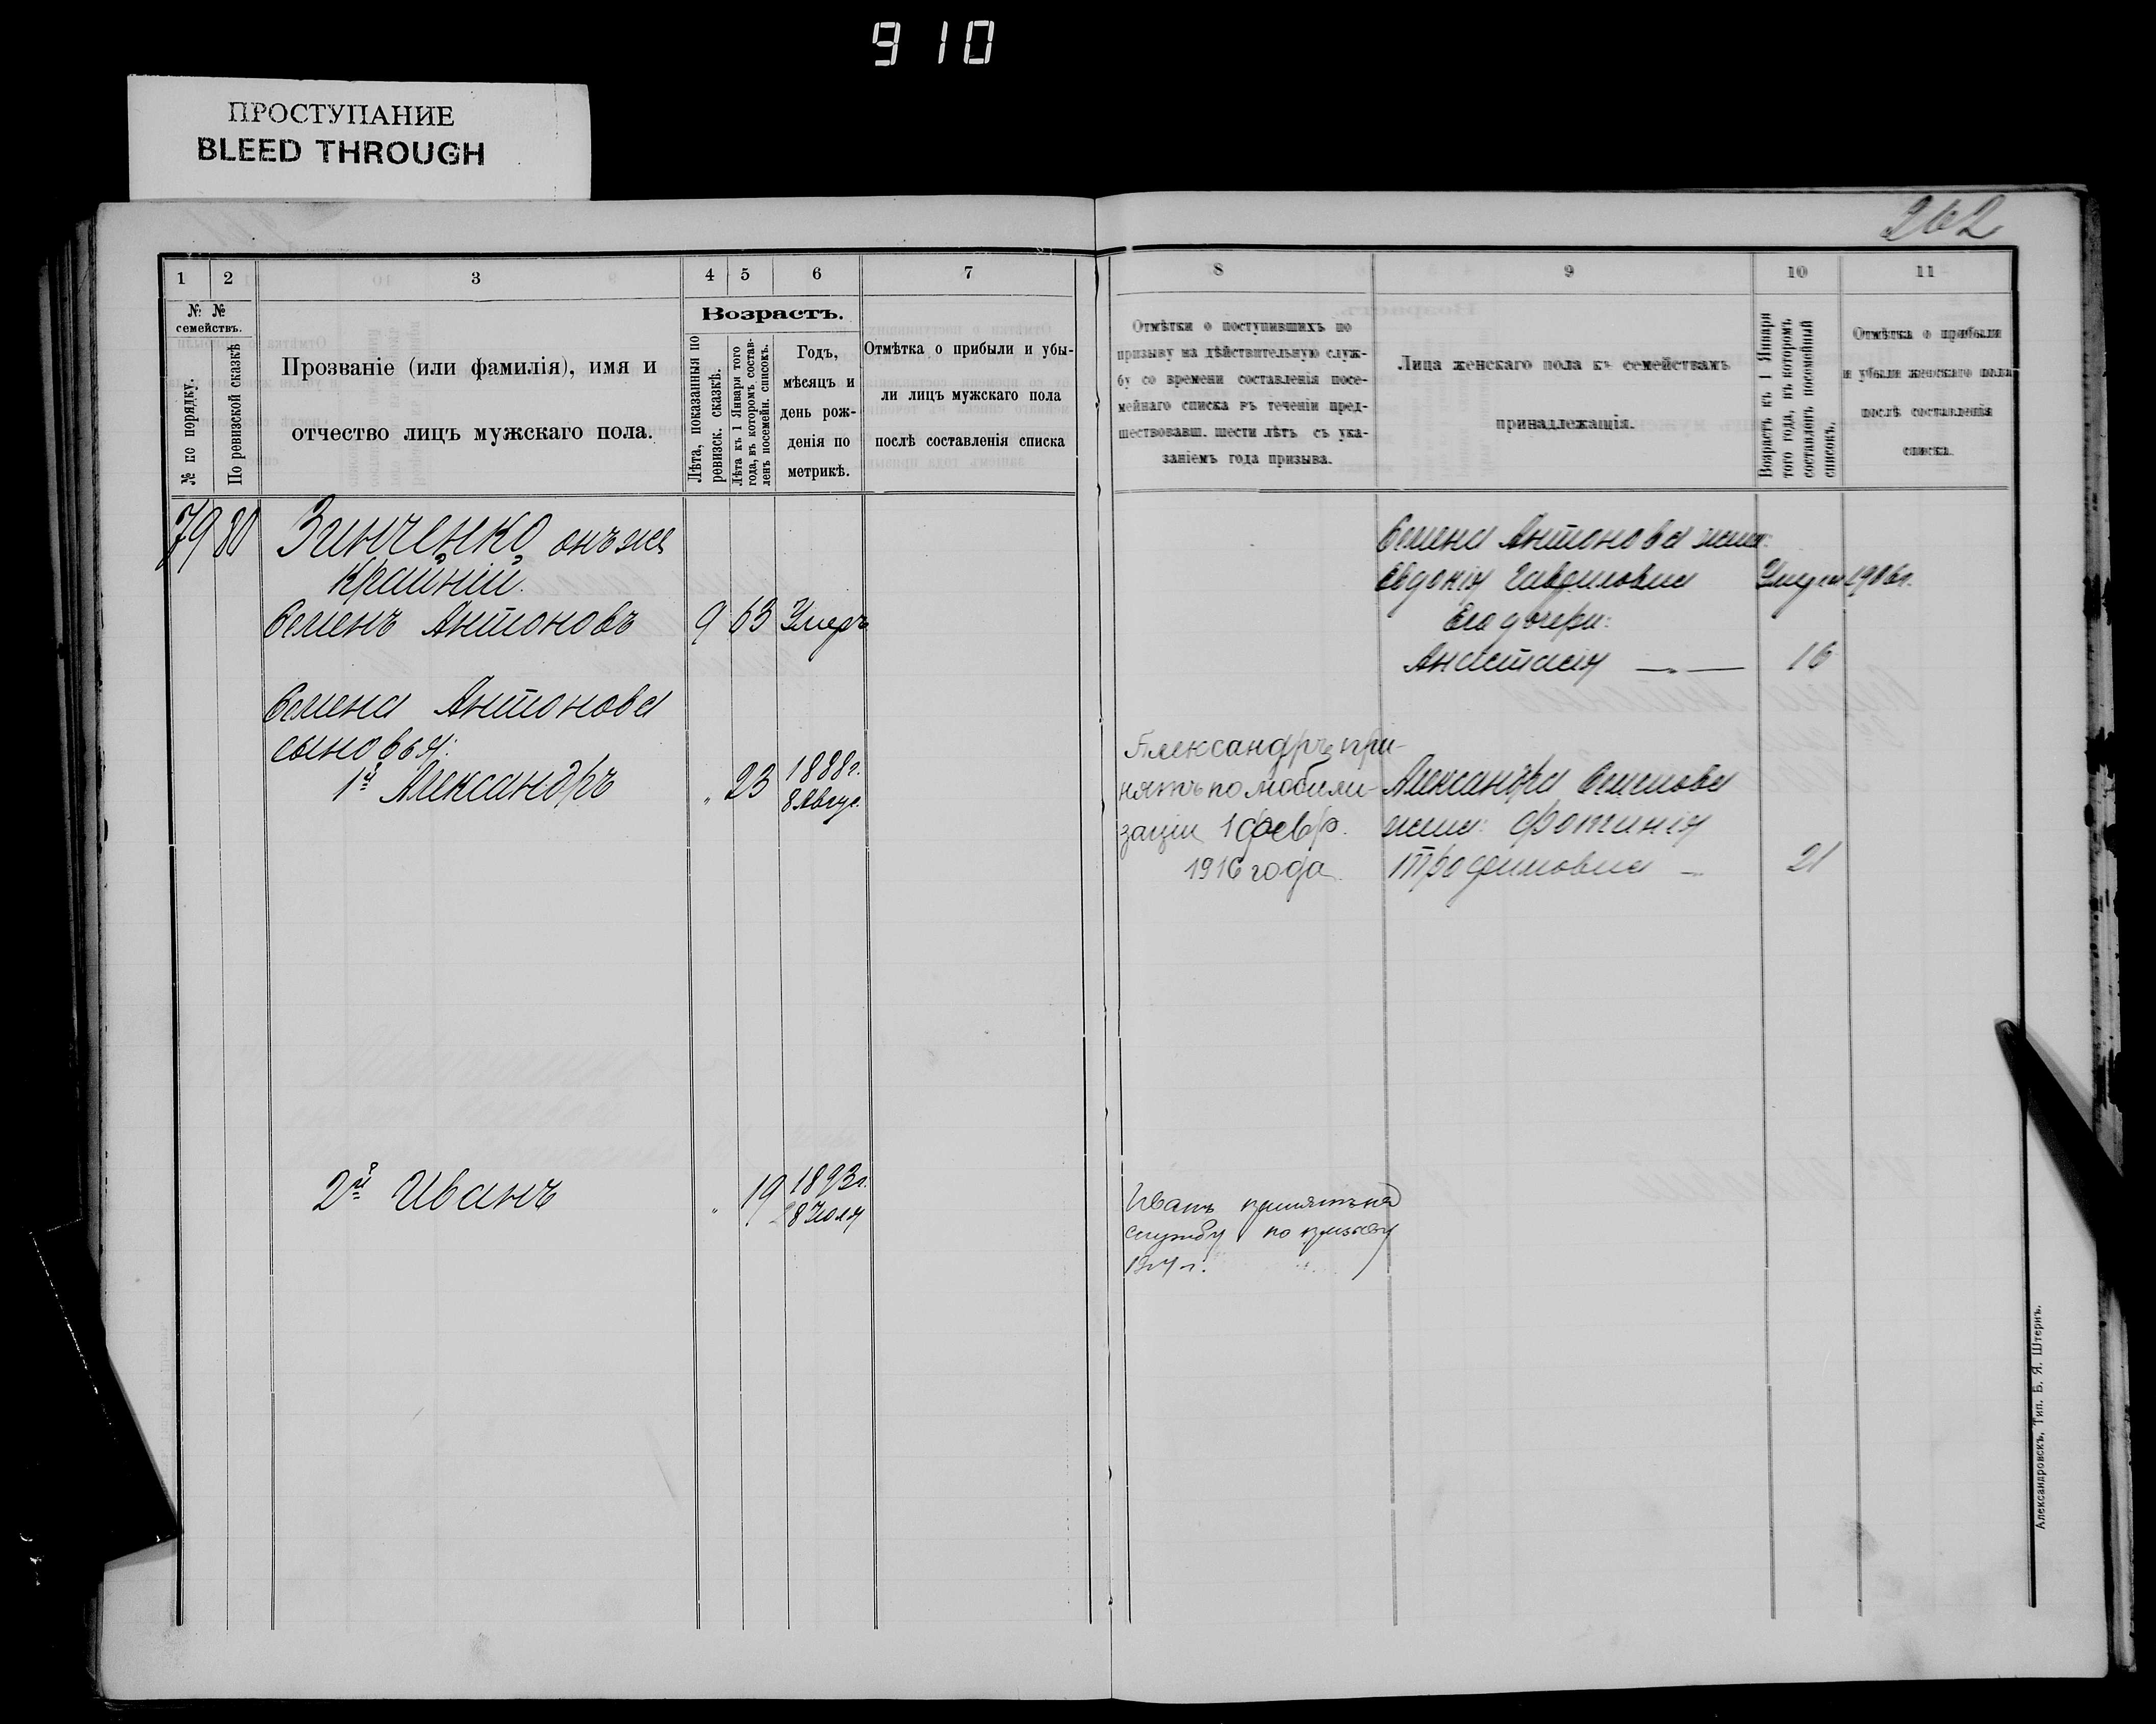 910
ПРОСТУПАНИЕ
BLEED THROUGH
262
1 2 3 4 5 6 7
№ № семействъ.
№ по порядку.
По ревизской сказкѣ
Прозваніе (или фамилія), имя и
отчество лицъ мужскаго пола.
Возрастъ.
Лѣта, показанныя по
ревизск. сказкѣ.
Лѣта къ 1 Января того
года, въ которомъ состав-
ленъ посемейн. списокъ.
Годъ,
мѣсяцъ и
день рож-
денія по
метрикѣ.
Отмѣтка о прибыли и убы-
ли лицъ мужскаго пола
послѣ составленія списка
79 80 Зинченко онъ же
Крайній.
Семенъ Антоновъ 9 63 Умеръ
Семена Антонова
сыновья:
1й Александръ " 23 1888г.
8 Август.
2й Иванъ " 19 1893г.
28 Июля
8 9 10 11
Отмѣтки о поступившихъ по
призыву на дѣйствительную служ-
бу со времени составленія посе-
мейнаго списка въ теченіи пред-
шествовавш. шести лѣтъ съ ука-
заніемъ года призыва.
Лица женскаго пола къ семействамъ
принадлежащія.
Возрастъ къ 1 Января
того года, въ которомъ
составленъ посемейный
списокъ.
Отмѣтка о прибыли
и убыли женскаго пола
послѣ составленія
списка.
Семена Антонова жена:
Евдокія Гавриловна Умерла 1906г.
Его дочери:
Анастасія — " — 16
Александръ при-
нятъ по мобили-
заціи 1 февр.
1916 года.
Александра Семенова
жена: Фотинія
Трофимовна — 21
Иванъ принятъ на
службу по призыву
1914 г.
Александровскъ, Тип. Б. Я. Штернъ.